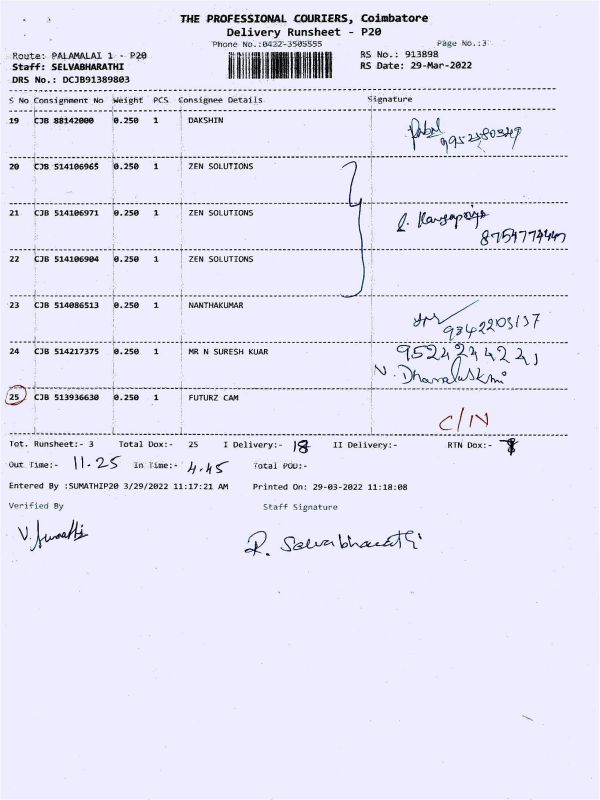 THE PROFESSIONAL COURIERS, Coimbatore
Delivery Runsheet - P20
Phone No.:0422-3505555 Page No.:3
Route: PALAMALAI 1 - P20 RS No.: 913898
Staff: SELVABHARATHI RS Date: 29-Mar-2022
DRS No.: DCJB91389803
S No Consignment No Weight PCS Consignee Details Signature
19 CJB 88142000 0.250 1 DAKSHIN
20 CJB 514106965 0.250 1 ZEN SOLUTIONS
21 CJB 514106971 0.250 1 ZEN SOLUTIONS
22 CJB 514106904 0.250 1 ZEN SOLUTIONS
23 CJB 514086513 0.250 1 NANTHAKUMAR
9342203137
24 CJB 514217375 0.250 1 MR N SURESH KUAR 9524224221
25 CJB 513936630 0.250 1 FUTURZ CAM
C/N
Tot. Runsheet:- 3 Total Dox:- 25 I Delivery:- 18 II Delivery:- RTN Dox:-
Out Time:- 11.25 In Time:- 4.45 Total POD:-
Entered By :SUMATHIP20 3/29/2022 11:17:21 AM Printed On: 29-03-2022 11:18:08
Verified By Staff Signature
R. Selvabharathi